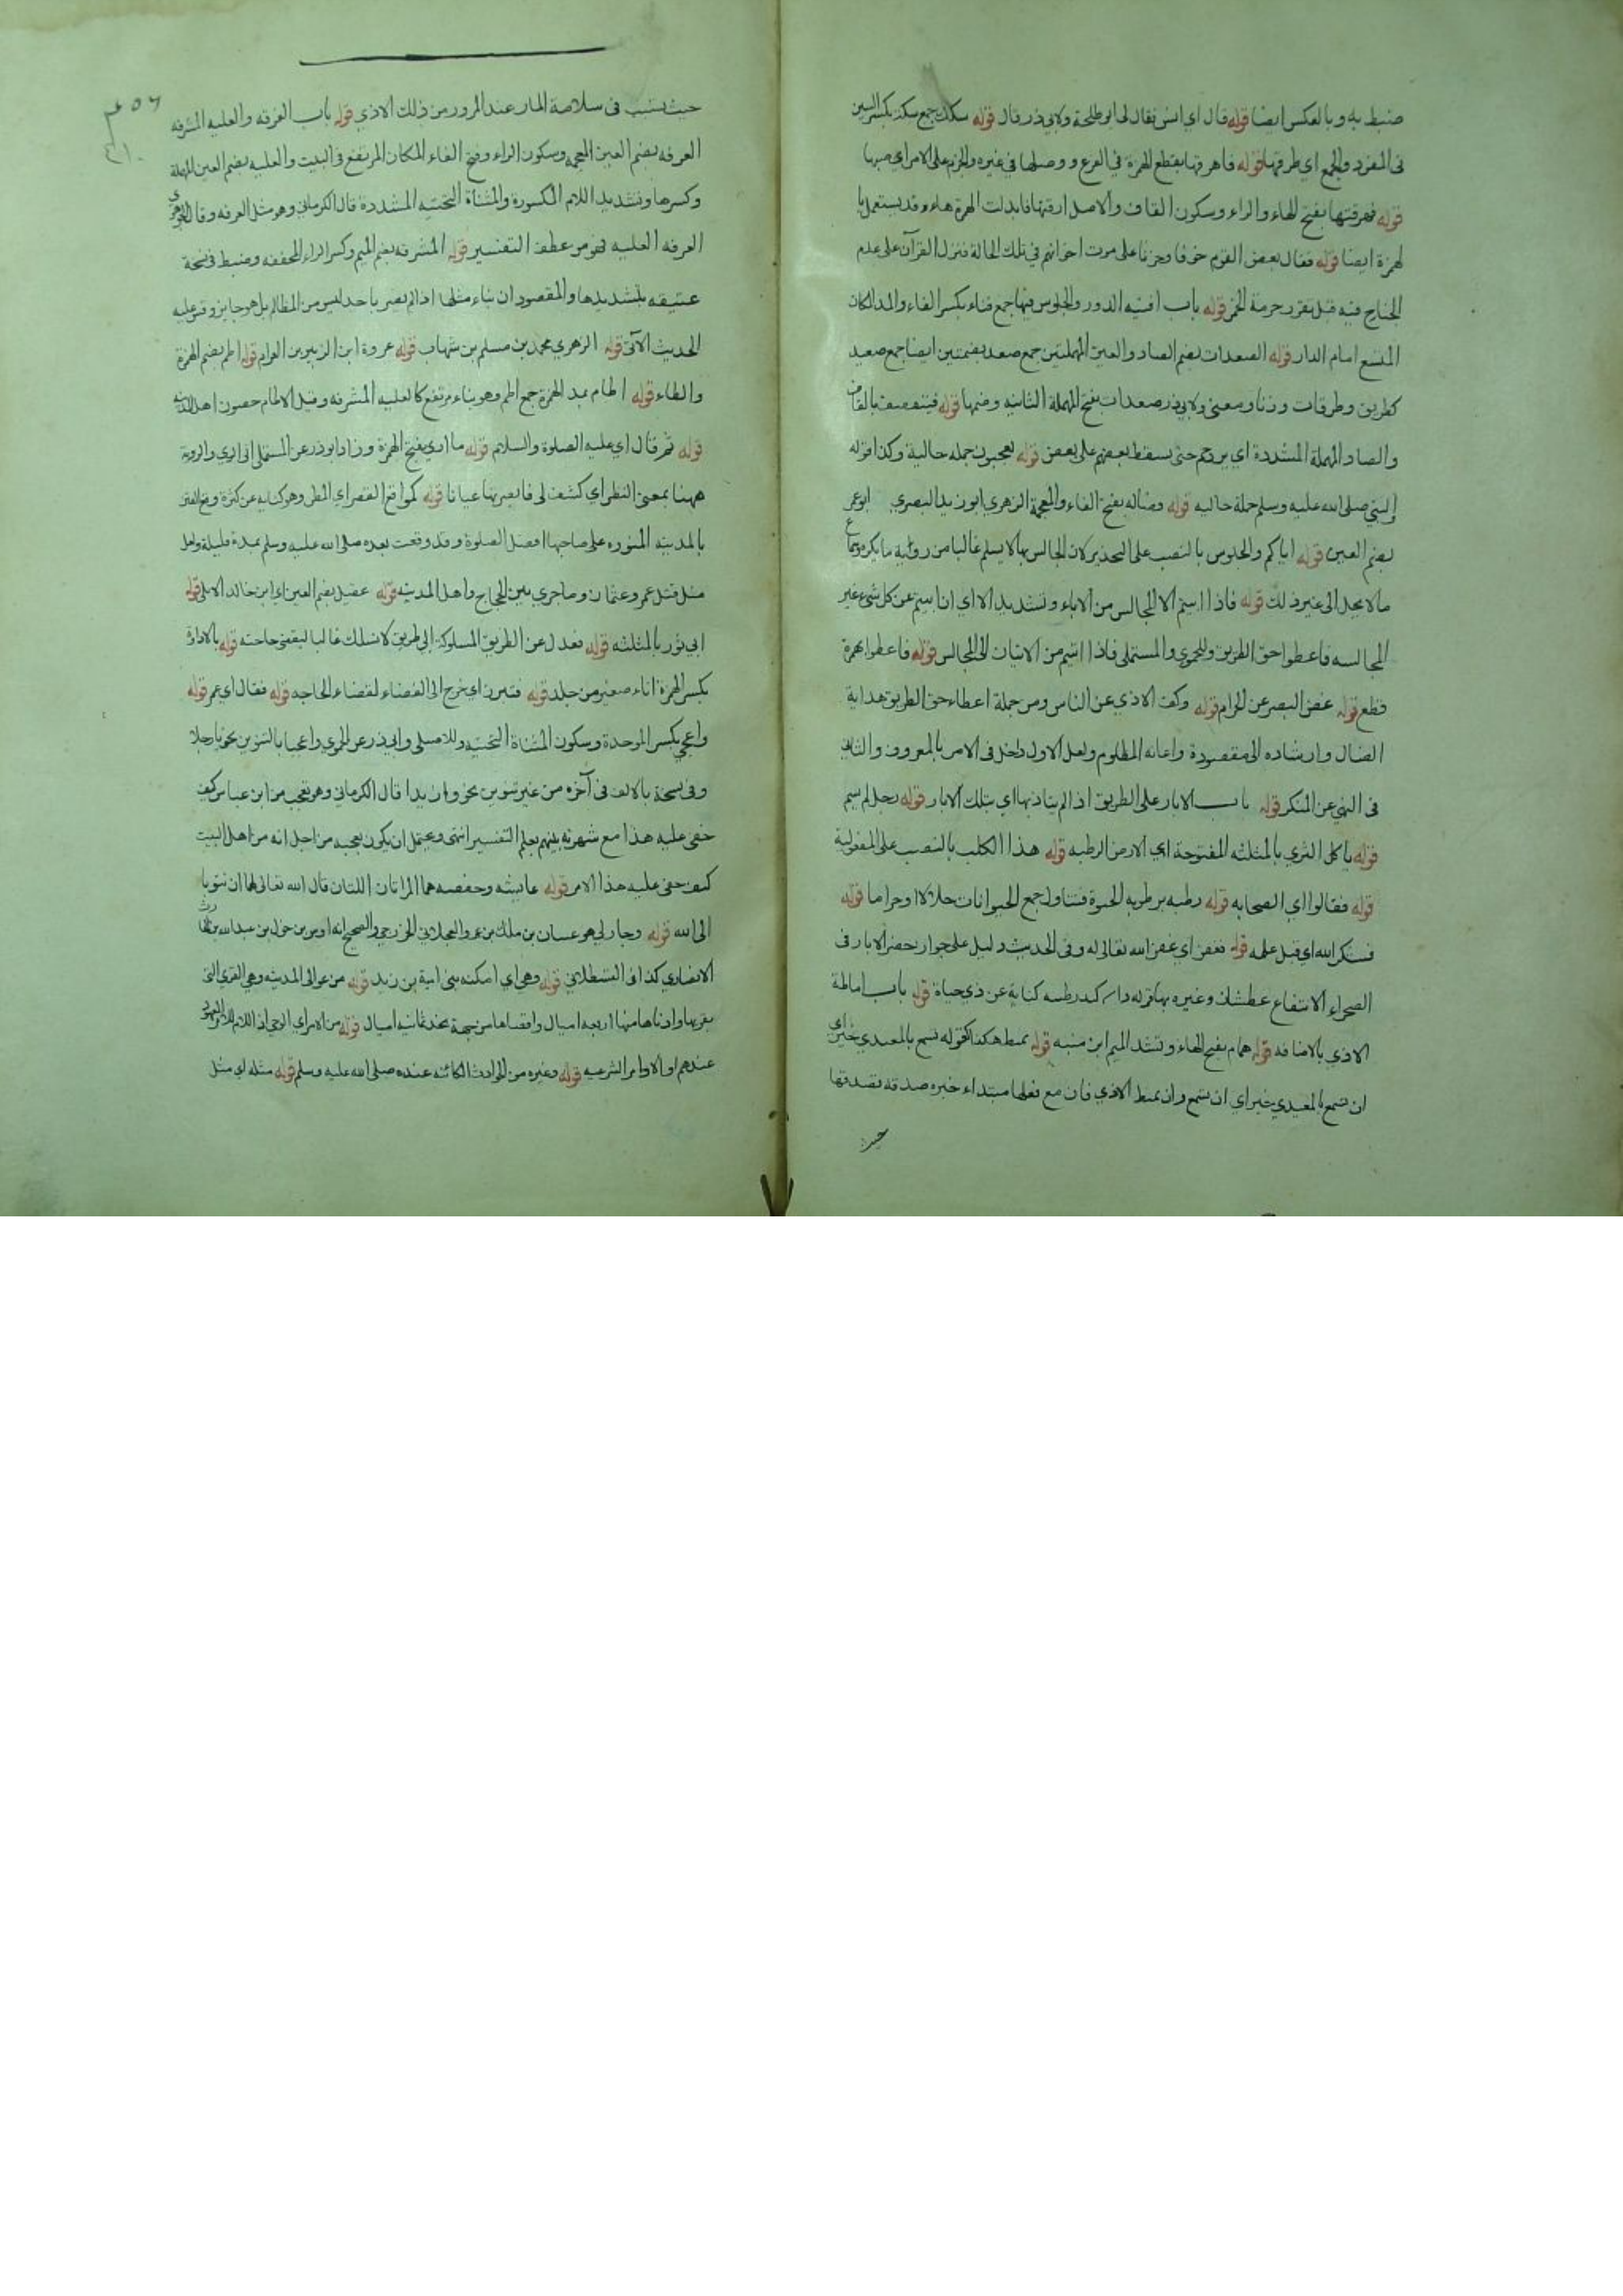 ضبط به وبالعكس ايضا قوله قال اي انس فقال لى ابو طلحة ولابي ذر قال قوله سكك جمع سكة بكسر السين
فى المفرد والجمع اي طرقها قوله فاهرقها بقطع الهمزة في الفرع ووصلها في غيره والجزم على الامر اي صبها
قوله فهرقتها بفتح الهاء والراء وسكون القاف والاصل ارقتها فابدلت الهمزة هاء وقد يستعمل با
لهمزة ايضا قوله فقال بعض القوم خوفا وحزنا على موت اخوانهم في تلك الحالة فنزل القرآن على عدم
الجناح فيه قبل تقرر حرمة الخمر قوله باب افنيه الدور والجلوس فيها جمع فناء بكسر الفاء والمد المكان
المتسع امام الدار قوله الصعدات بضم الصاد والعين المهملتين جمع صعد بضمتين ايضا جمع صعيد
كطريق وطرقات وزنا ومعنى ولابي ذر صعدات بفتح المهملة الثانيه وضمها قوله فيتقصف بالقاف
والصاد المهملة المشددة اي يزدحم حتى يسقط بعضهم على بعض قوله يعجبون جمله حالية وكذا قوله
والنبي صلى الله عليه وسلم جملة حاليه قوله وفضاله بفتح الفاء والمعجمة الزهري ابو زيد البصري ابو عمر
بضم العين قوله اياكم والجلوس بالنصب على التحذير لان الجالس بها لا يسلم غالبا من روئية ما يكره وسماع
مالا يحل الى غير ذلك قوله فاذا ابيتم الا المجالس من الاباء وتشديد الا اي ان ابيتم عن كل شيء غير
المجالسه فاعطوا حق الطريق وللحموي والمستملى فاذا اتيتم من الاتيان الى المجالس قوله فاعطوا بهمزة
قطع قوله غض البصر عن الحرام قوله وكف الاذي عن الناس ومن جملة اعطاء حق الطريق هداية
الضال وارشاده الى مقصوده واعانه المظلوم ولعل الاول داخل فى الامر بالمعروف والثانى
فى النهي عن المنكر قوله باب الابار على الطريق اذا لم يتاذ بها اي بتلك الابار قوله رجل لم يسم
قوله ياكل الثري بالمثلثه المفتوحة اي الارض الرطبه قوله هذا الكلب بالنصب على المفعولية
قوله فقالوا اي الصحابه قوله رطبه برطوبه الحيوة فتناول جمع الحيوانات حلالا وحراما قوله
فشكر الله اي قبل عمله قوله فغفر اي غفر الله تعالى له وفى الحديث دليل على جواز حفر الابار فى
الصحراء لانتفاع عطشان وغيره بها قوله ذات كبد رطبه كناية عن ذي حياة قوله باب اماطة
الاذي بالاضافه قوله همام بفتح الهاء وتشد الميم ابن منبه قوله يميط هكذا كقوله تسمع بالمعيدي خير اي
ان تسمع بالمعيدي خير اي ان تسمع وان يميط الاذي فان مع فعلها مبتداء خبره صدقه تصدقها
حيث
حيث تسبب فى سلامة المار عند المرور من ذلك الاذي قوله باب الغرفه والعليه المشرفه
الغرفه بضم الغين المعجمة وسكون الراء وفتح الفاء المكان المرتفع فى البيت والعليه بضم العين المهملة
وكسرها وتشديد اللام المكسورة والمثناة التحتيه المشددة قال الكرمانى وهو مثل الغرفه وقال الجوهري
الغرفه العليه فهو من عطف التفسير قوله المشرفه بضم الميم وكسر الراء المخففه وضبط فى نسخة
عتيقه بتشديدها والمقصود ان بناء مثلها اذا لم يضر باحد ليس من المظالم بل هو جايز وقس عليه
الحديث الآتى قوله الزهري محمد بن مسلم بن شهاب قوله عروة ابن الزبير بن العوام قوله اطم بضم الهمزة
والطاء قوله اطام بمد الهمزة جمع اطم وهو بناء مرتفع كالعليه المشرفه وقيل الاطام حصون اهل المدينه
قوله ثم قال اي عليه الصلوة والسلام قوله ما اري بفتح الهمزة وزاد ابو ذر عن المستملى انى اري والروية
ههنا بمعنى النظر اي كشف لى فابصر بها عيانا قوله كمواقع القطر اي المطر وهو كنايه عن كثرة وقوع الفتن
بالمدينه المنوره على صاحبها افضل الصلوة وقد وقعت بعده صلى الله عليه وسلم بمدة قليلة ولعل
مثل قتل عمر وعثمان وما جري بين الحجاج واهل المدينه قوله عقيل بضم العين اي ابن خالد الايلى قوله
ابي ثور بالمثلثه قوله فعدل عن الطريق المسلوكة الى طريق لا تسلك غالبا ليقضى حاجته قوله بالاداوة
بكسر الهمزة اناء صغير من جلد قوله فتبرز اي خرج الى الفضاء لقضاء الحاجه قوله فقال اي عمر قوله
واعجبي بكسر الموحدة وسكون المثناة التحتيه وللاصيلى وابي ذر عن الحموي واعجبا بالتنوين نحو يا رجلا
وفى نسخة بالالف فى آخره من غير تنوين نحو وازيدا قال الكرمانى وهو تعجب من ابن عباس كيف
خفى عليه هذا مع شهرته بينهم بعلم التفسير انتهى ويحتمل ان يكون تعجبه من اجل انه من اهل البيت
كيف خفى عليه هذا الامر قوله عايشه وحفصه هما المراتان اللتان قال الله تعالى لهما ان تتوبا
الى الله قوله وجار لي هو عتبان بن ملك بن عمرو العجلانى الخزرجي والصحيح انه اوس بن خولى بن عبد الله بن الحارث
الانصاري كذا فى القسطلاني قوله وهي اي امكنه بنى امية بن زيد قوله من عوالى المدينه وهي القري التى
بقربها وادناها منها اربعه اميال واقصاها من جهة نجد ثمانيه اميال قوله من الامر اي الوحى اذ اللام للامر المعهود
عندهم او الاوامر الشرعيه قوله وغيره من الحوادث الكائنه عنده صلى الله عليه وسلم قوله مثله اي مثل